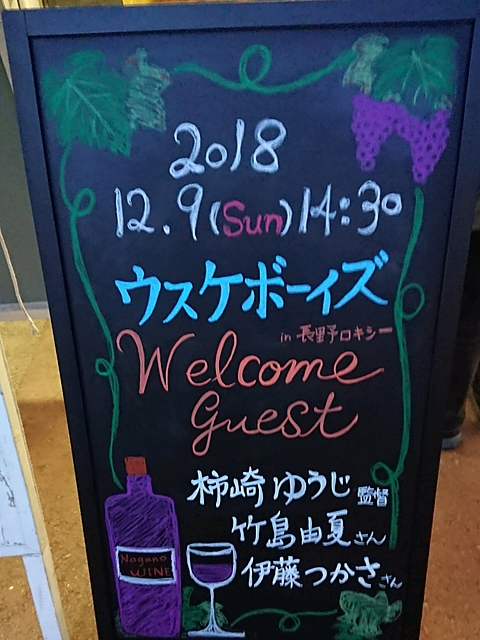 2018
12.9(Sun)14:30
ウスケボーイズ
in 長野ロキシー
Welcome
guest
柿崎ゆうじ監督
竹島由夏さん
伊藤つかささん
Nagano
WINE